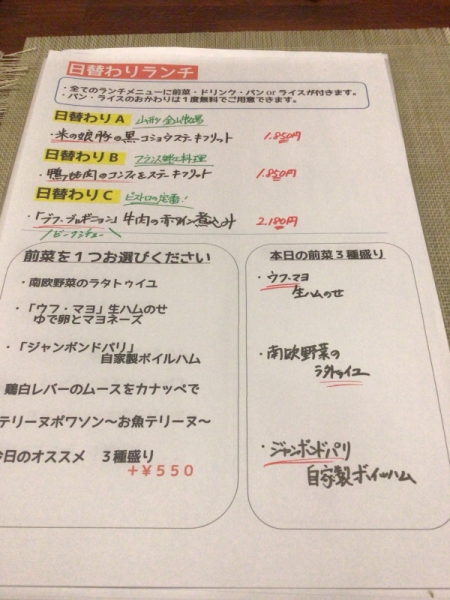 日替わりランチ
・全てのランチメニューに前菜・ドリンク・パン or ライスが付きます。
・パン・ライスのおかわりは1度無料でご用意できます。
日替わりA 山形 金山牧場
・米の娘豚の黒コショウステーキフリット 1,850円
日替わりB フランス郷土料理
・鴨もも肉のコンフィ&ステーキフリット 1,850円
日替わりC ビストロの定番!
・「ブフ・ブルギニョン」牛肉の赤ワイン煮込み 2,180円
ビーフシチュー
前菜を1つお選びください
・南欧野菜のラタトゥイユ
・「ウフ・マヨ」生ハムのせ
ゆで卵とマヨネーズ
・「ジャンボンドパリ」
自家製ボイルハム
鶏白レバーのムースをカナッペで
テリーヌポワソン〜お魚テリーヌ〜
今日のオススメ 3種盛り
+¥550
本日の前菜3種盛り
・ウフ・マヨ
生ハムのせ
・南欧野菜の
ラタトゥイユ
・ジャンボンドパリ
自家製ボイルハム